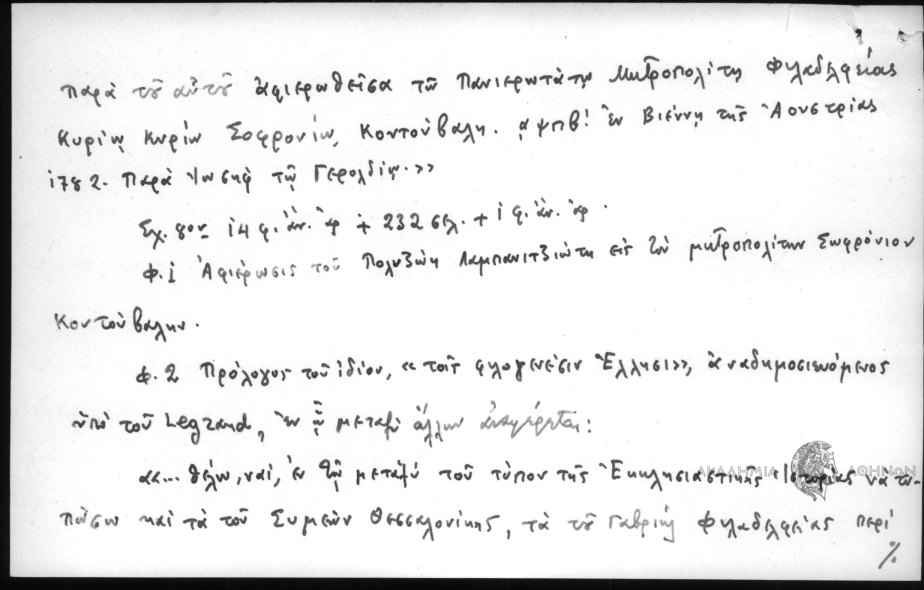 παρὰ τοῦ αὐτοῦ ἀφιερωθεῖσα τῷ Πανιερωτάτῳ Μητροπολίτῃ Φιλαδελφείας
Κυρίῳ Κυρίῳ Σοφρονίῳ, Κοντούβαλη. αψπβ! ἐν Βιέννῃ τῆς Ἀουστρίας
1782. Παρὰ Ἰωσὴφ τῷ Γερολδίῳ.»
Σχ. 8ον 14 φ. ἄν. ἀρ + 232 σελ. + 1 φ. ἄν. ἀρ.
φ. 1 Ἀφιέρωσις τοῦ Πολυζώη Λαμπανιτζιώτη εἰς τὸν μητροπολίτην Σωφρόνιον
Κοντούβαλην.
φ. 2 Πρόλογος τοῦ ἰδίου, «τοῖς φιλογενέσιν Ἕλλησι», ἀναδημοσιευόμενος
ὑπὸ τοῦ Legrand, ἐν ᾧ μεταξὺ ἄλλων ἀναφέρεται:
«... θέλω, ναί, ἐν τῷ μεταξύ τοῦ τύπου τῆς Ἐκκλησιαστικῆς Ἱστορίας νὰ τυ-
πώσω καὶ τὰ τοῦ Συμεὼν Θεσσαλονίκης, τὰ τοῦ Γαβριὴλ Φιλαδελφείας περὶ
%
ΑΚΑΔΗΜΙΑ ΑΘΗΝΩΝ